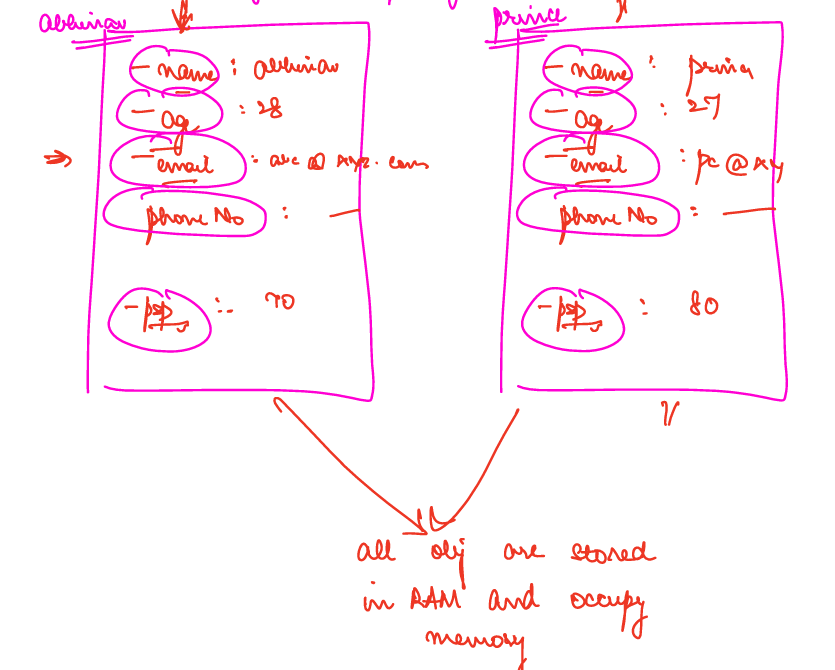 abhinav
- name : abhinav
- age : 28
- email : abc @ xyz. com
phone No : —
- psp : 70
prince
- name : prince
- age : 27
- email : pc @ xy
phone No : —
- psp : 80
all obj are stored
in RAM and occupy
memory